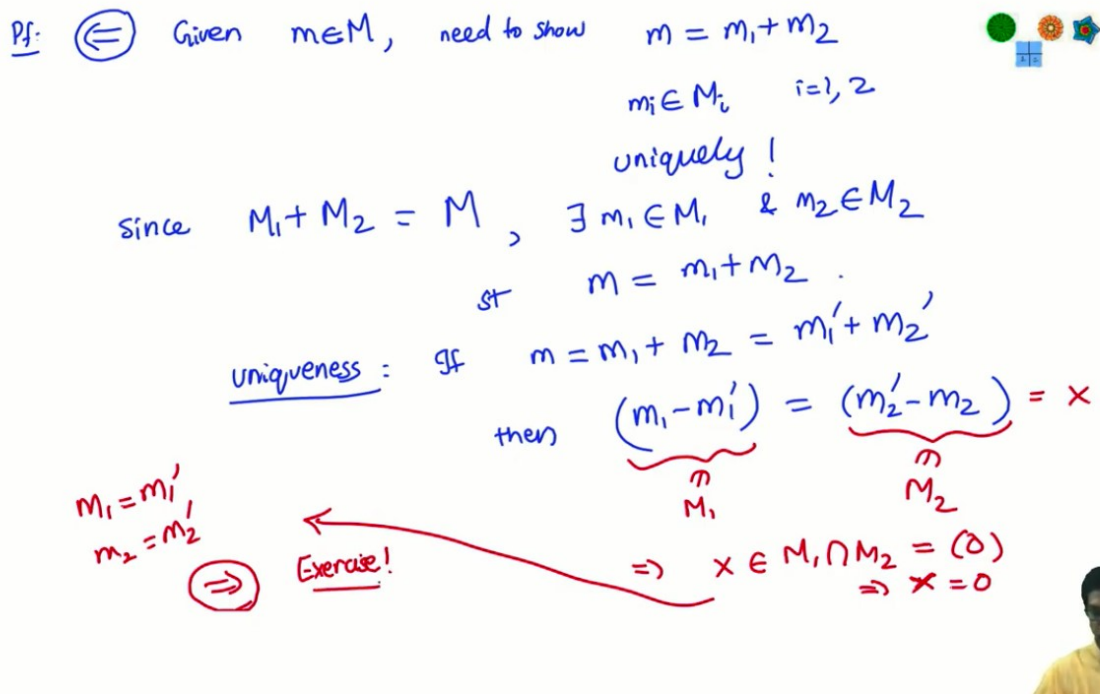 Pf: (⇐) Given m∈M, need to show m = m₁+m₂
mᵢ∈Mᵢ i=1, 2
uniquely !
since M₁+M₂ = M, ∃ m₁∈M₁ & m₂∈M₂
st m = m₁+m₂.
uniqueness: If m = m₁+m₂ = m₁'+m₂'
then (m₁-m₁') = (m₂'-m₂) = x
∈ M₁ ∈ M₂
m₁=m₁',
m₂=m₂'
⇒ x ∈ M₁∩M₂ = (0)
⇒ x=0
(⇒) Exercise!